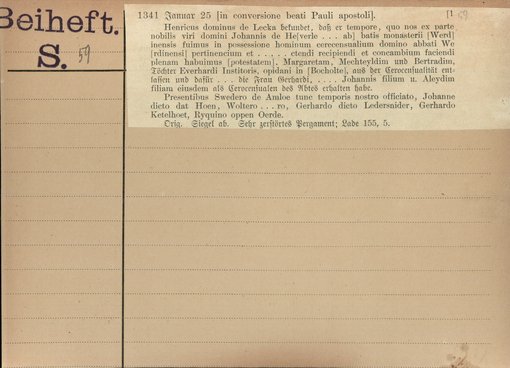 Beiheft.
S. 59
1341 Januar 25 [in conversione beati Pauli apostoli]. [1
Henricus dominus de Lecka bekundet, daß er tempore, quo nos ex parte
nobilis viri domini Johannis de He[verle . . . ab] batis monasterii [Werd]
inensis fuimus in possessione hominum cerecensualium domino abbati We
[rdinensi] pertinencium et . . . . . etendi recipiendi et concambium faciendi
plenam habuimus [potestatem], Margaretam, Mechteyldim und Bertradim,
Töchter Everhardi Institoris, opidani in [Bocholte], aus der Cerocensualität ent-
lassen und dafür . . . . die Frau Gerhardi, . . . . Johannis filium u. Aleydim
filiam eiusdem als Cerocensualen des Abtes erhalten habe.
Presentibus Swedero de Amloe tunc temporis nostro officiato, Johanne
dicto dat Hoen, Woltero . . . ro, Gerhardo dicto Ledersnider, Gerhardo
Ketelhoet, Ryquino oppen Oerde.
Orig. Siegel ab. Sehr zerstörtes Pergament; Lade 155, 5.